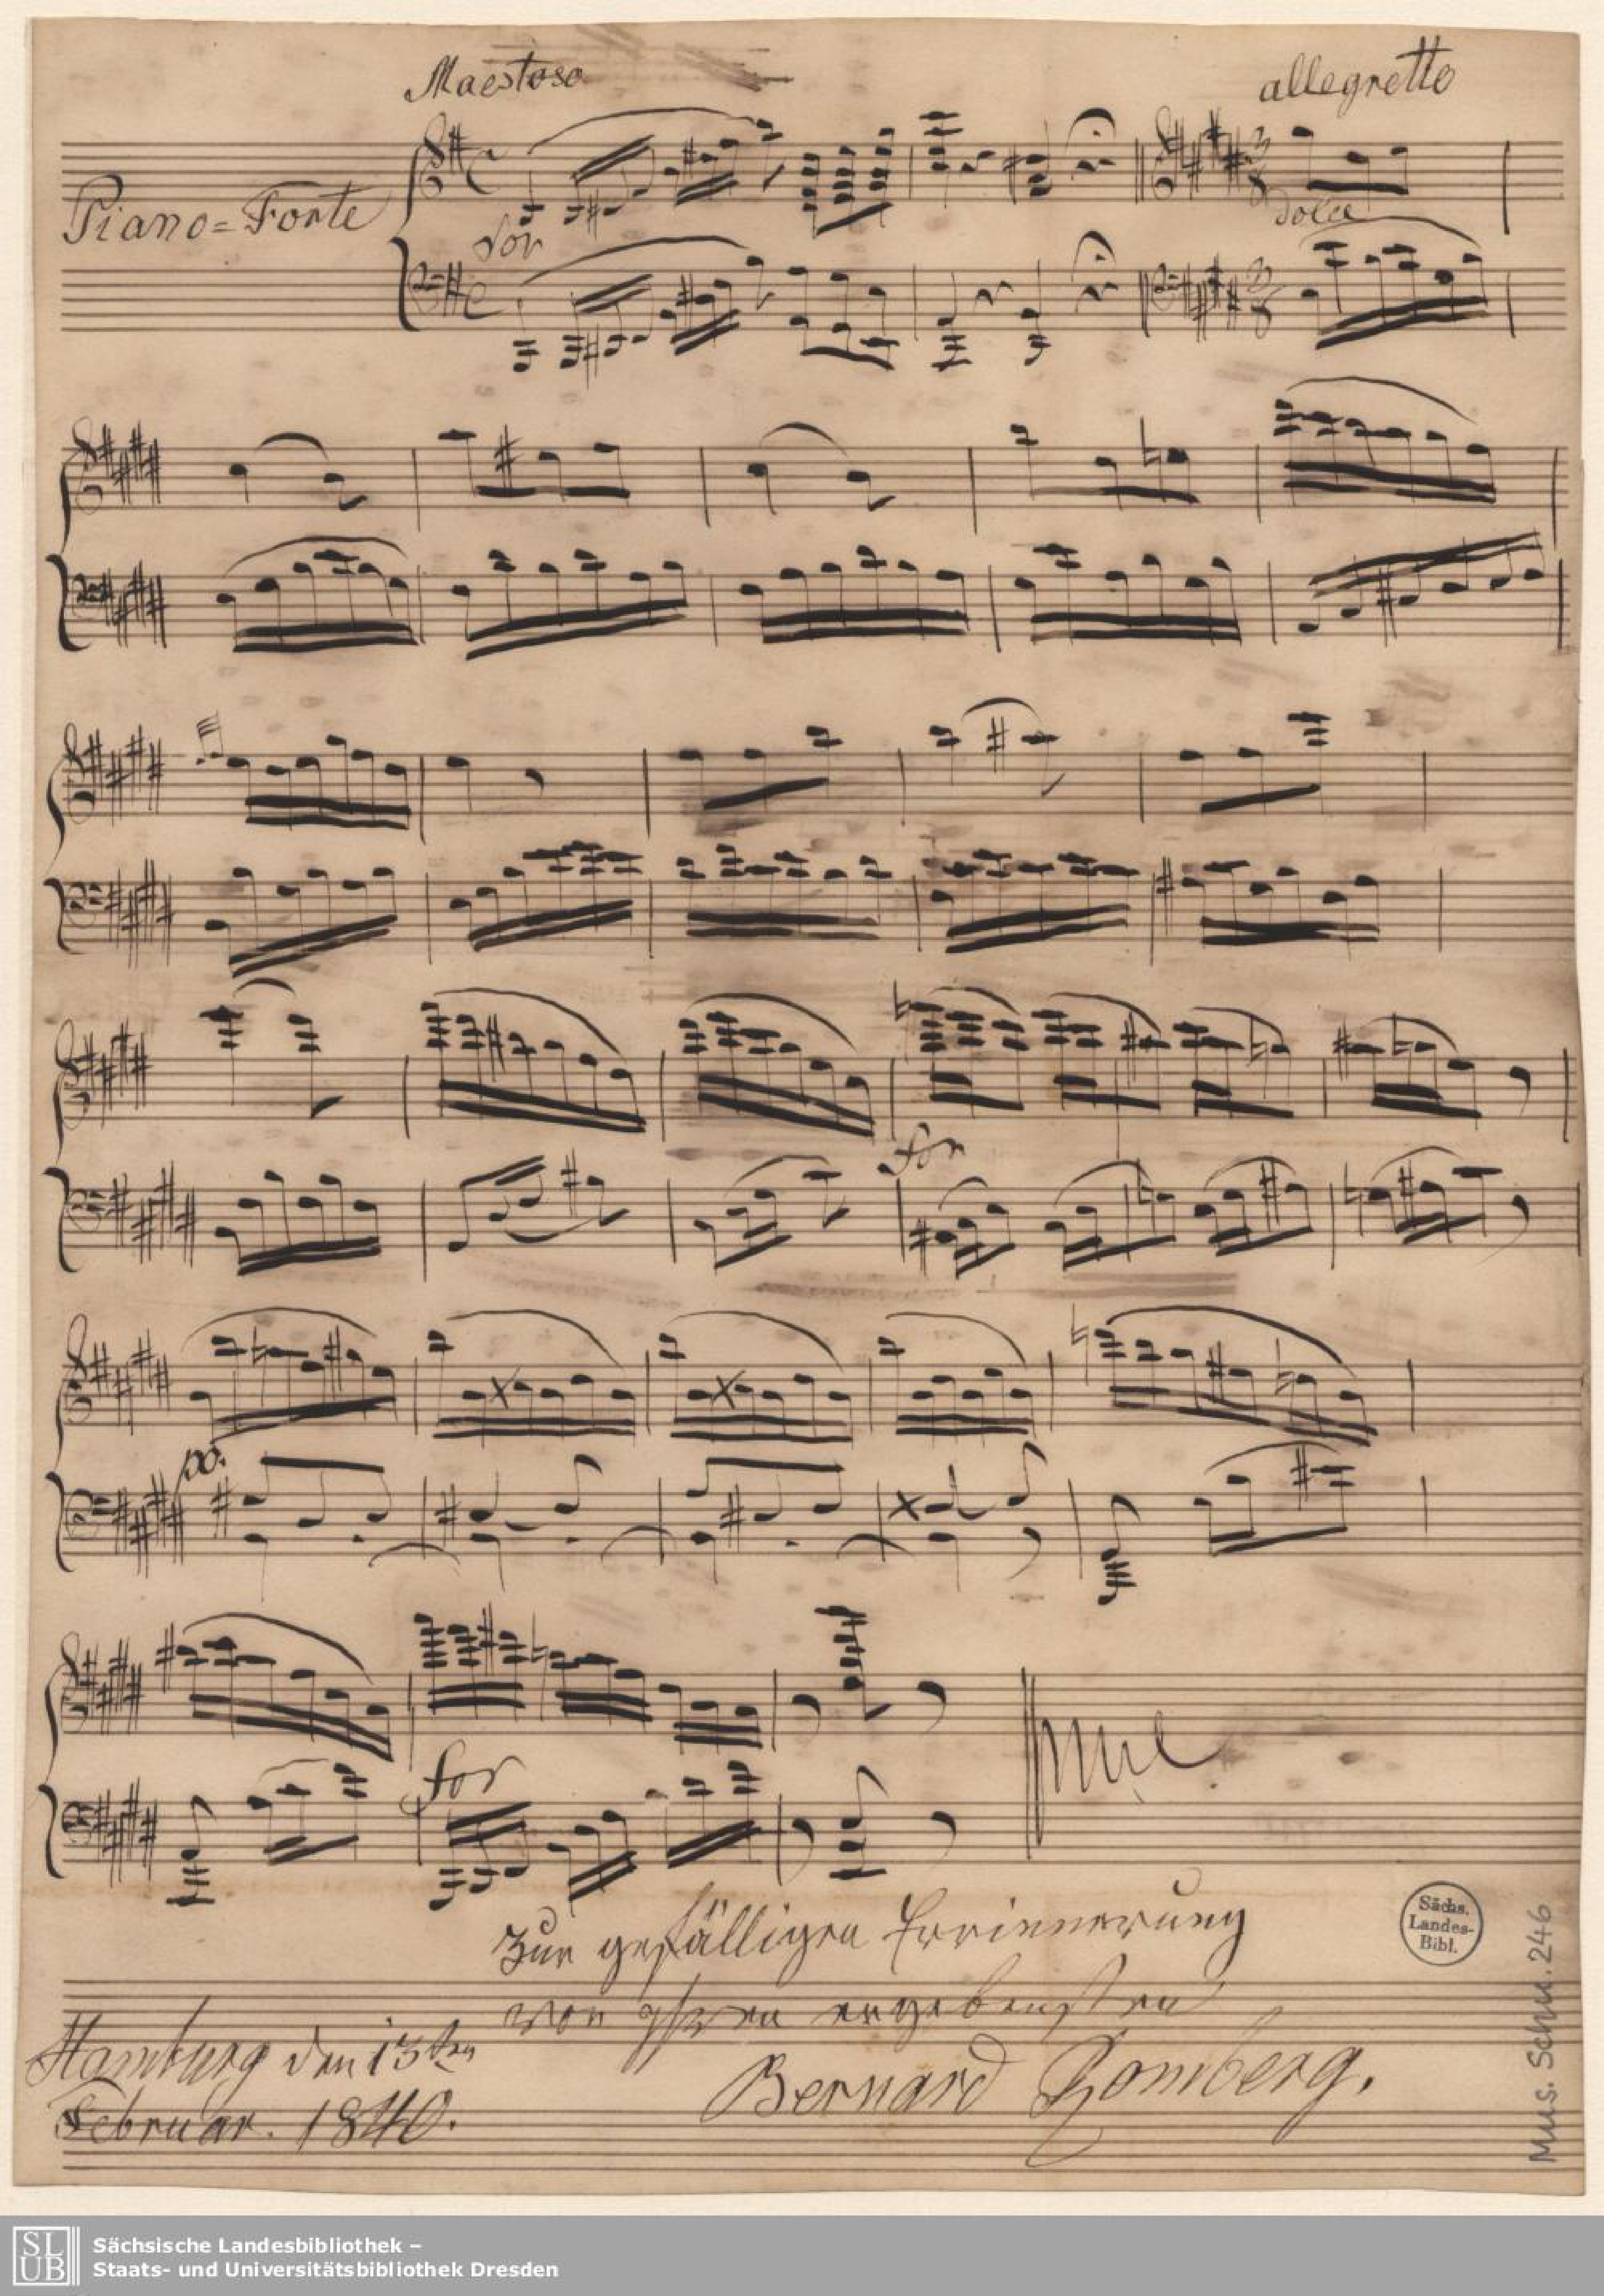 Maestoso
allegretto
Piano=Forte
for
dolce
for
po.
for
Zur gefälligen Errinnerung
von Ihren ergebensten
Bernard Romberg.
Hamburg den 13ten
Februar. 1840.
Sächs.
Landes-
Bibl.
Mus. Schu. 246
SLUB
Sächsische Landesbibliothek –
Staats- und Universitätsbibliothek Dresden